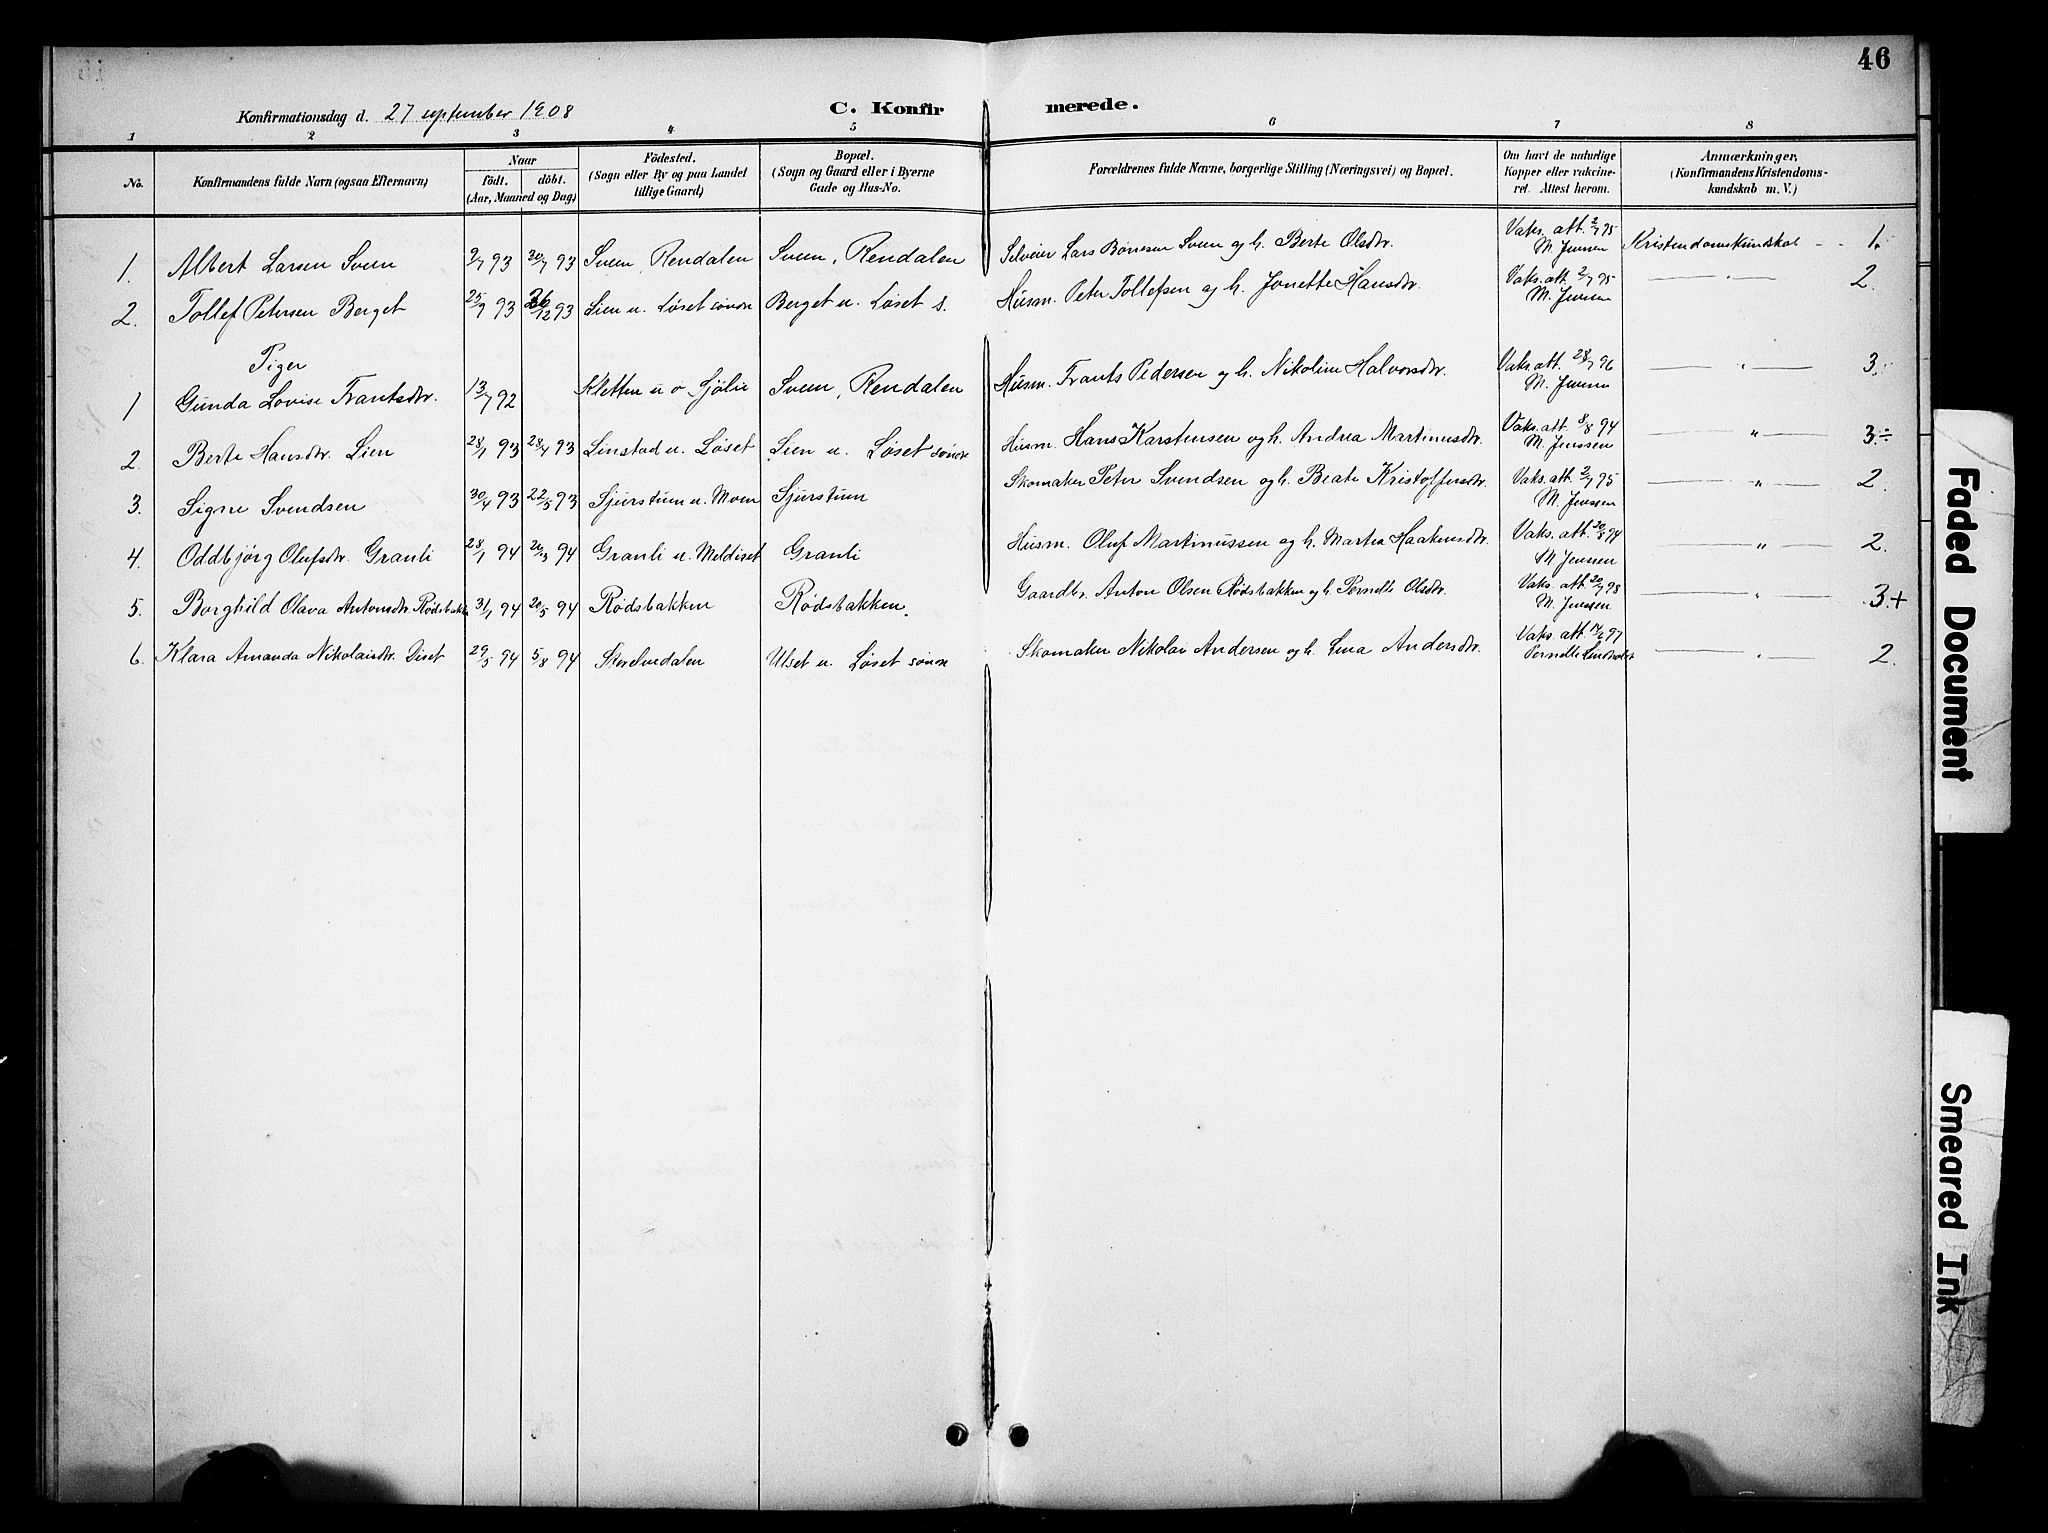 46
Konfirmationsdag d. 27 september 1908 C. Konfir merede.
1 2 3 4 5 6 7 8
No. Konfirmandens fulde Navn (ogsaa Efternavn) Naar født. døbt. (Aar, Maaned og Dag) Födested. (Sogn eller By og paa Landet tillige Gaard) Bopæl. (Sogn og Gaard eller i Byerne Gade og Hus-No. Forældrenes fulde Navne, borgerlige Stilling (Næringsvei) og Bopæl. Om havt de naturlige Kopper eller vakcineret. Attest herom. Anmærkninger, (Konfirmandens Kristendomskundskab m. V.)
1. Albert Larsen Sveen 2/7 93 30/7 93 Sveen, Rendalen Sveen, Rendalen Selveier Lars Bönesen Sveen og h. Berte Olsdtr. Vaks. att. 2/7 95 M. Jensen Kristendomskundskab 1.
2. Tollef Petersen Berget 25/9 93 26/12 93 Lien u. Løset søndre Berget u. Løset s. Husm. Peter Tollefsen og h. Jonette Hansdtr. Vaks. att. 2/7 95 M. Jensen — " — 2.
Piger
1 Gunda Lovise Frantsdtr. 13/7 92 Kletten u. ø. Sjölie Sveen, Rendalen Husm. Frants Pedersen og h. Nikoline Halvorsdtr. Vaks. att. 28/7 96 M. Jensen — " — 3.
2. Berte Hansdtr. Lien 28/1 93 28/4 93 Linstad u. Løset Lien u. Løset søndre Husm. Hans Karstensen og h. Andrea Martinusdtr. Vaks. att. 8/8 94 M. Jenssen — " — 3.÷
3. Signe Svendsen 30/4 93 22/5 93 Sjurstuen u. Moen Sjurstuen Skomaker Peter Svendsen og h. Beate Kristoffersdtr. Vaks. att. 2/7 95 M. Jenssen — " — 2.
4. Oddbjörg Olufsdtr. Granli 28/1 94 26/3 94 Granli u. Meldiset Granli Husm. Oluf Martinussen og h. Martea Haakensdtr. Vaks. att. 20/8 94 M Jensen — " — 2.
5. Borghild Olava Antonsdtr. Rødsbakken 31/1 94 20/5 94 Rødsbakken Rødsbakken. Gaardbr. Anton Olsen Rødsbakken og h. Pernelle Olsdtr. Vaks. att. 20/7 98 M. Jenssen — " — 3.+
6. Klara Amanda Nikolaisdtr. Diset 29/5 94 5/8 94 Storelvedalen Ulset u. Løset søndre Skomaker Nikolai Andersen og h. Lina Andersdtr. Vaks. att. 14/6 97 — " — 2.
Faded Document
Smeared Ink